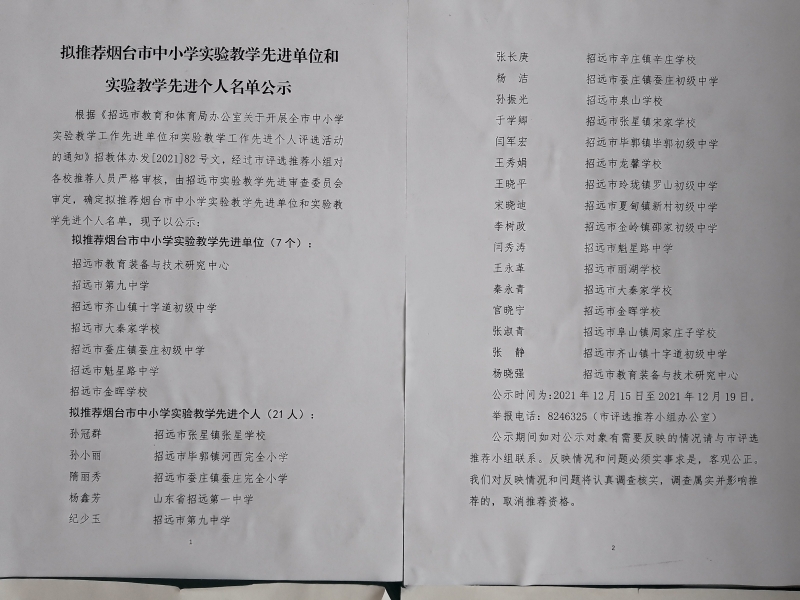 拟推荐烟台市中小学实验教学先进单位和
实验教学先进个人名单公示
根据《招远市教育和体育局办公室关于开展全市中小学
实验教学工作先进单位和实验教学工作先进个人评选活动
的通知》招教体办发[2021]82号文，经过市评选推荐小组对
各校推荐人员严格审核，由招远市实验教学先进审查委员会
审定，确定拟推荐烟台市中小学实验教学先进单位和实验教
学先进个人名单，现予以公示：
拟推荐烟台市中小学实验教学先进单位（7个）：
招远市教育装备与技术研究中心
招远市第九中学
招远市齐山镇十字道初级中学
招远市大秦家学校
招远市蚕庄镇蚕庄初级中学
招远市魁星路中学
招远市金晖学校
拟推荐烟台市中小学实验教学先进个人（21人）：
孙冠群 招远市张星镇张星学校
孙小丽 招远市毕郭镇河西完全小学
隋丽秀 招远市蚕庄镇蚕庄完全小学
杨鑫芳 山东省招远第一中学
纪少玉 招远市第九中学
1
张长庚 招远市辛庄镇辛庄学校
杨 洁 招远市蚕庄镇蚕庄初级中学
孙振光 招远市泉山学校
于学卿 招远市张星镇宋家学校
闫军宏 招远市毕郭镇毕郭初级中学
王秀娟 招远市龙馨学校
王晓平 招远市玲珑镇罗山初级中学
宋晓迪 招远市夏甸镇新村初级中学
李树政 招远市金岭镇邵家初级中学
闫秀涛 招远市魁星路中学
王永革 招远市丽湖学校
秦永青 招远市大秦家学校
宫晓宁 招远市金晖学校
张淑青 招远市阜山镇周家庄子学校
张 静 招远市齐山镇十字道初级中学
杨晓强 招远市教育装备与技术研究中心
公示时间为：2021年12月15日至2021年12月19日。
举报电话：8246325（市评选推荐小组办公室）
公示期间如对公示对象有需要反映的情况请与市评选
推荐小组联系。反映情况和问题必须实事求是，客观公正。
我们对反映情况和问题将认真调查核实，调查属实并影响推
荐的，取消推荐资格。
2